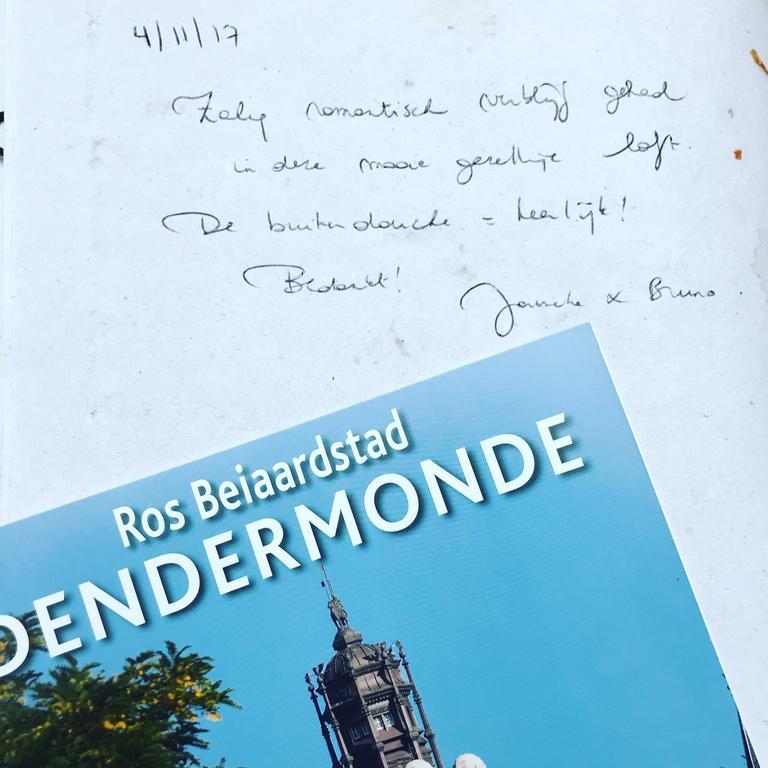 4/11/17
Zalig romantisch verblijf gehad
in deze mooie gezellige loft.
De buitendouche = heerlijk!
Bedankt!
Janneke & Bruno.
Ros Beiaardstad
DENDERMONDE